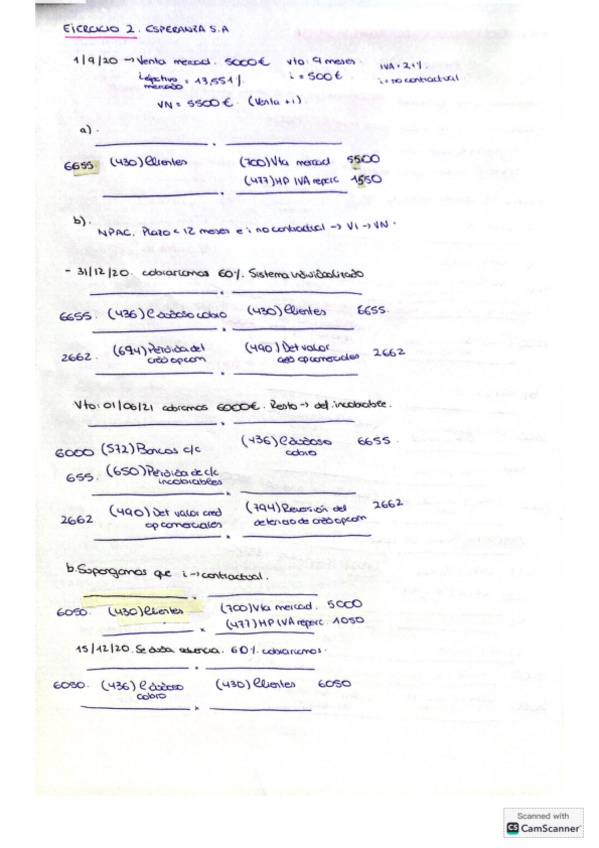 EJERCICIO 2. ESPERANZA S.A
1/9/20 → Venta mercad. 5000€ vto. 9 meses. IVA = 21%.
i efectivo mercado = 13,551%. i = 500€. i = no contractual.
VN = 5500€. (Venta + i)
a).
6655 (430) Clientes (700) Vta mercad. 5500
(477) HP IVA reperc 1550
b).
NPAC. Plazo < 12 meses e i no contractual → VI → VN.
- 31/12/20. cobraríamos 60%. Sistema individualizado
6655. (436) C dudoso cobro (430) Clientes 6655.
2662. (694) Pérdida det cred op com (490) Det valor cred op comerciales 2662
Vto: 01/06/21 cobramos 6000€. Resto → def. incobrable.
6000 (572) Bancos c/c (436) C dudoso cobro 6655.
655. (650) Pérdida de c/c incobrables
2662 (490) Det valor cred op comerciales (794) Reversión del deterioro de cred op com 2662
b. Supongamos que i → contractual.
6050. (430) Clientes (700) Vta mercad. 5000
(477) HP IVA reperc. 1050
15/12/20. Se duda 60% cobraríamos.
6050. (436) C dudoso cobro (430) Clientes 6050
Scanned with
CS CamScanner